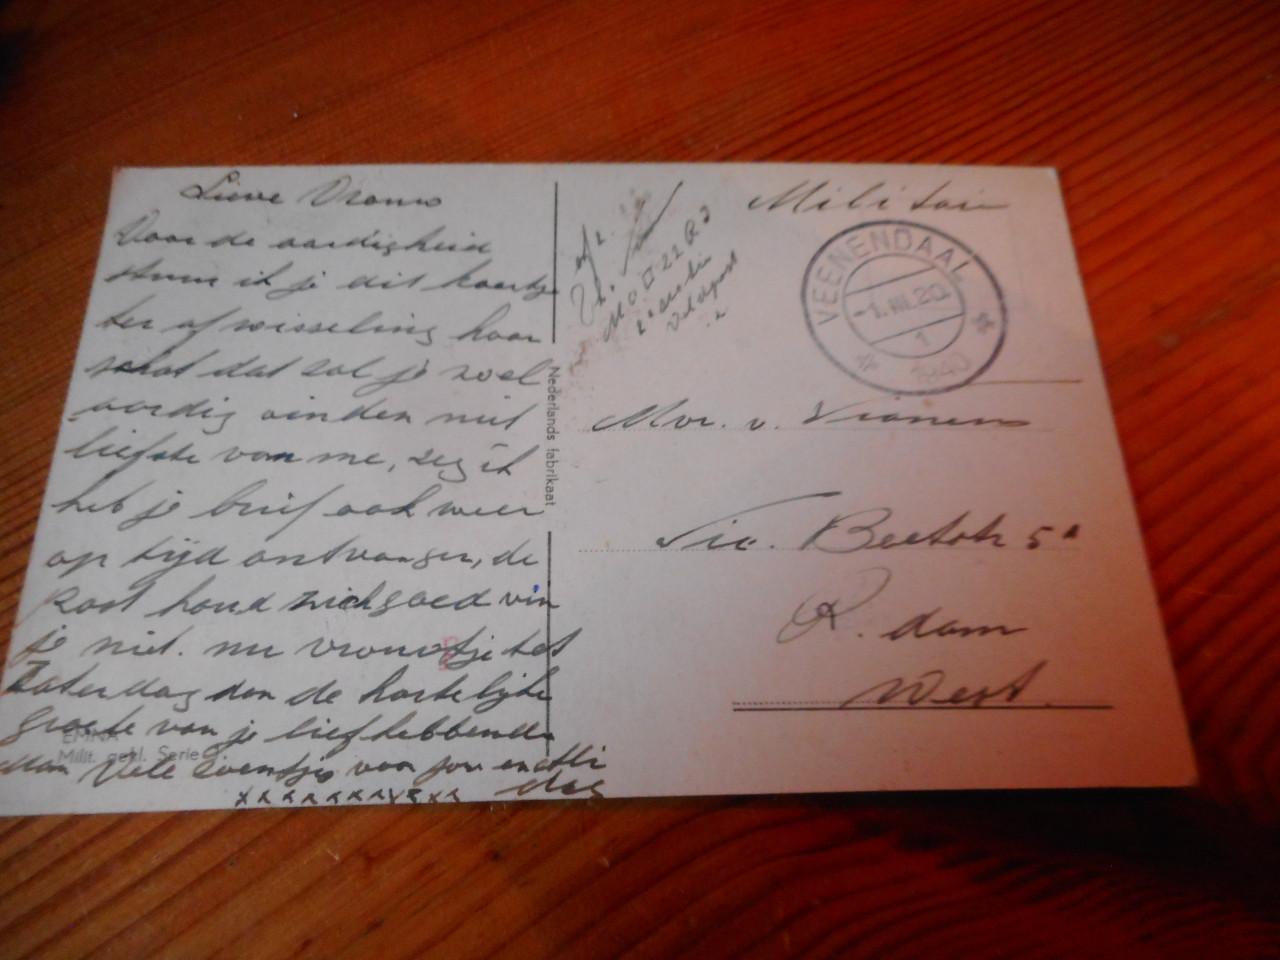 Lieve Vrouw
Voor de aardigheid
stuur ik je dit kaartje
ter afwisseling hoor
schat dat zal je wel
aardig vinden niet
liefste van me, zeg ik
heb je brief ook weer
op tijd ontvangen, de
post houd zich goed vin
je niet. nu vrouwtje tot
Zaterdag dan de hartelijke
groete van je liefhebbende
Man Vele zoentjes voor jou en
dag
x x x x x x x x x x
EMNA
Milit. gekl. Serie
Nederlands fabrikaat
Militair
II 22 R J
2e sectie
Veldpost
VEENENDAAL
-1.III.20
1
1940
Mvr. v. Vianen
Nic. Beetsstr 5a
R. dam
West.